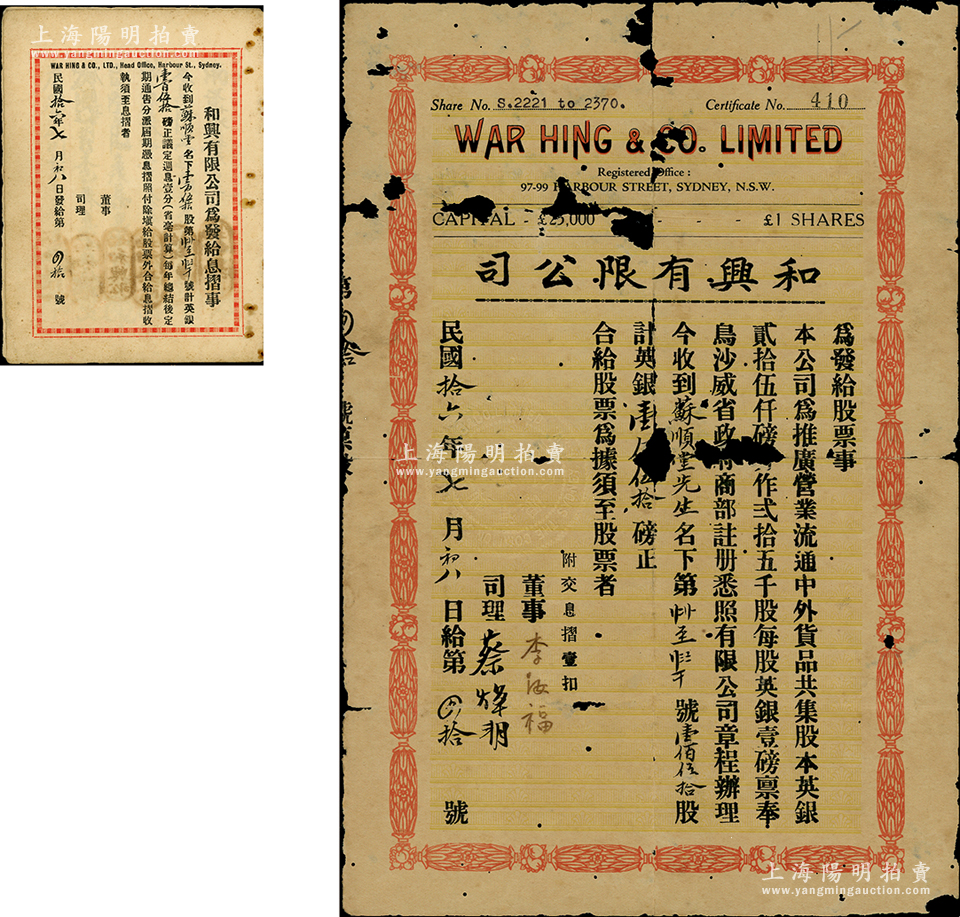 上海陽明拍賣
www.yangmingauction.com
WAR HING & CO., LTD., Head Office, Harbour St., Sydney.
和興有限公司爲發給息摺事
今收到蘇順堂名下壹百伍拾股第 號計英銀
壹百伍拾磅正議定週息壹分(省毫計算)每年總結後定
期通告分派屆期憑息摺照付除塡給股票外合給息摺收
執須至息摺者
董事
司理
民國拾六年七月初八日發給第 拾 號
Share No. S.2221 to 2370.
Certificate No. 410
WAR HING & CO. LIMITED
Registered Office:
97-99 HARBOUR STREET, SYDNEY, N.S.W.
CAPITAL - £25,000 - - - £1 SHARES
和興有限公司
爲發給股票事
本公司爲推廣營業流通中外貨品共集股本英銀
貳拾伍仟磅 作弍拾五千股每股英銀壹磅禀奉
鳥沙威省政府商部註册悉照有限公司章程辦理
今收到蘇順堂先生名下第 至 號壹佰伍拾股
計英銀壹 伍拾磅正
合給股票爲據須至股票者
附交息摺壹扣
董事 李 福
司理 蔡
民國拾六年七月初八日給第 拾 號
第 拾 號
上海陽明拍賣
www.yangmingauction.com
上海陽明拍賣
www.yangmingauction.com